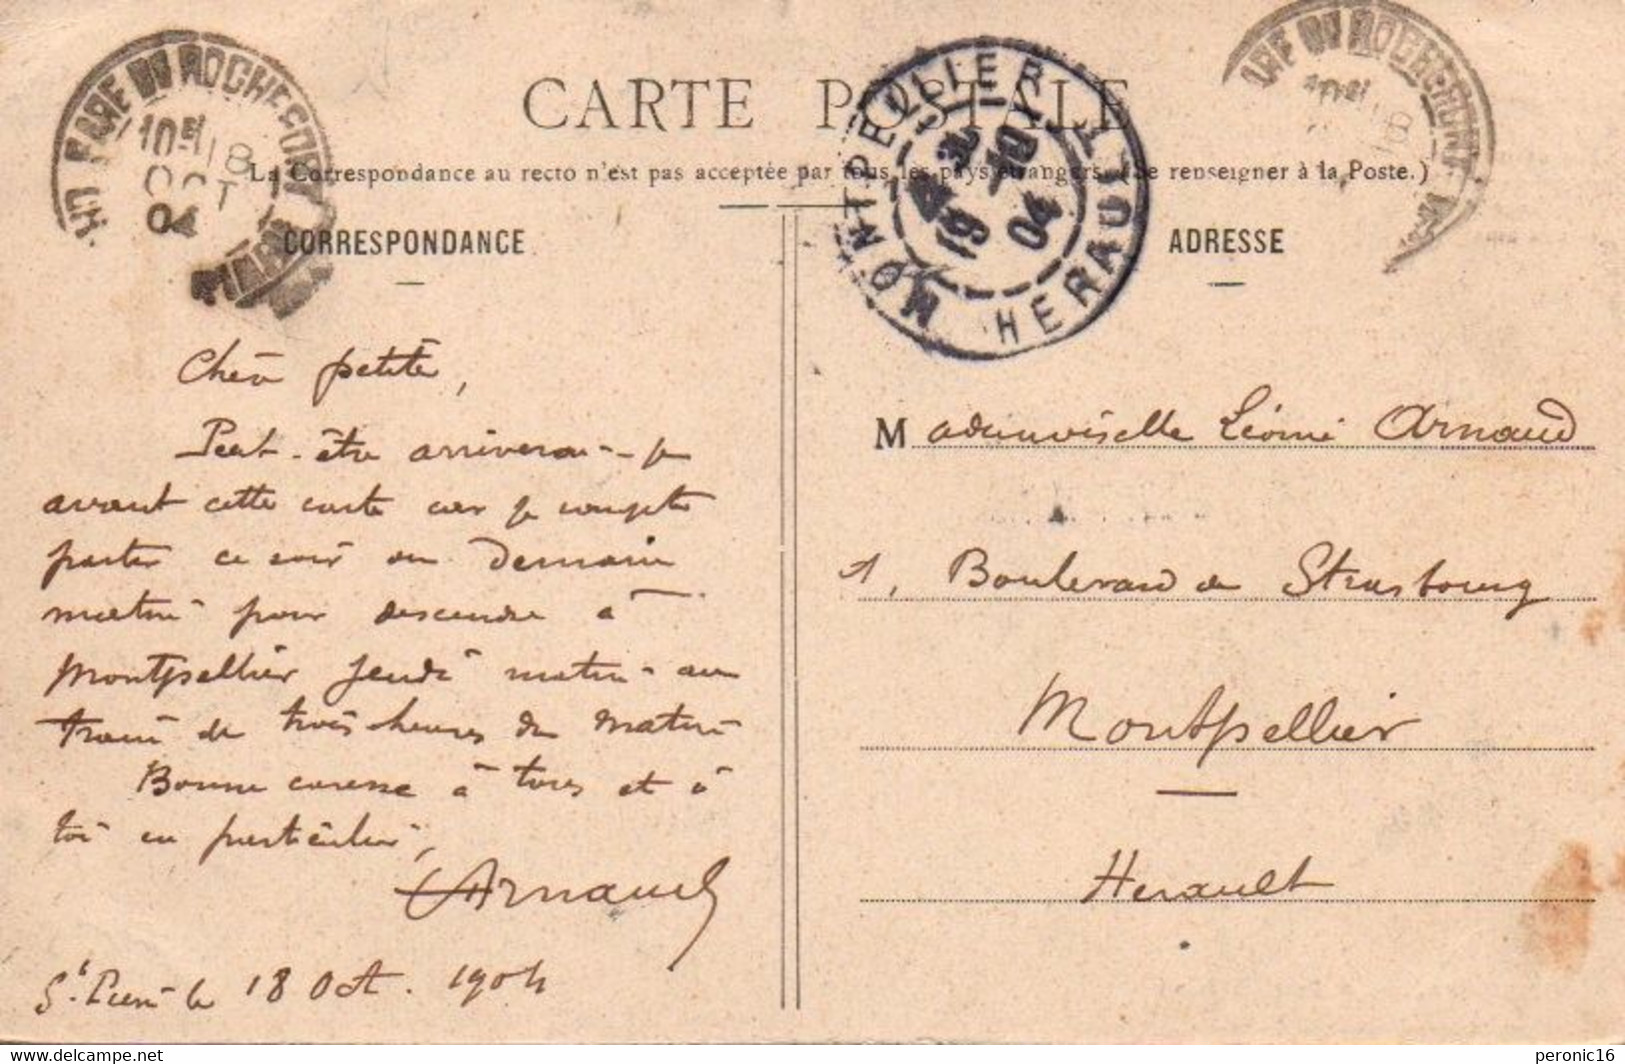 CARTE POSTALE
La Correspondance au recto n'est pas acceptée par tous les pays étrangers (Se renseigner à la Poste.)
CORRESPONDANCE
ADRESSE
10E
18
OCT
04
MONTPELLIER
19 -10
04
HERAULT
Chère petite,
Peut-être arriverai-je
avant cette carte car je compte
partir ce soir ou demain
matin pour descendre à
Montpellier jeudi matin au
train de trois heures du matin
Bonne caresse à tous et à
toi en particulier,
Arnaud
St. Pierre le 18 Oct. 1904
Mademoiselle Léonie Arnaud
1, Boulevard de Strasbourg
Montpellier
Herault
delcampe.net
peronic16